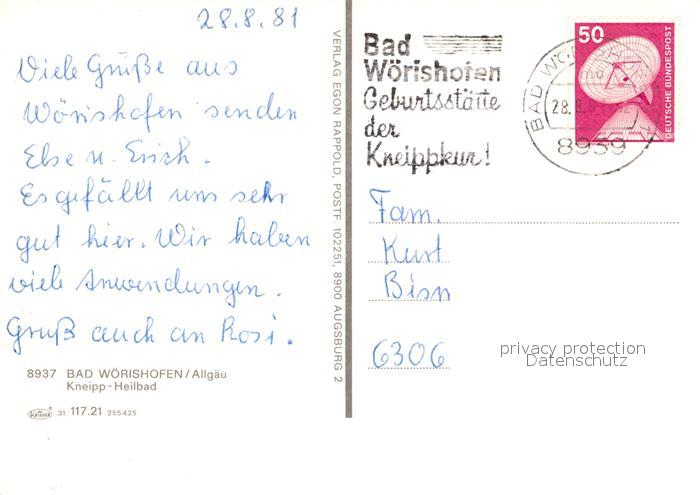 28.8.81
Viele Grüße aus
Wörishofen senden
Else u. Erich.
Es gefällt uns sehr
gut hier. Wir haben
viele Anwendungen.
Gruß auch an Rosi.
8937 BAD WÖRISHOFEN/Allgäu
Kneipp-Heilbad
31. 117.21 255425
VERLAG EGON RAPPOLD, POSTF. 102251, 8900 AUGSBURG 2
Bad
Wörishofen
Geburtsstätte
der
Kneippkur!
28.8.
8939
50
DEUTSCHE BUNDESPOST
Fam.
Kurt
6306
privacy protection
Datenschutz